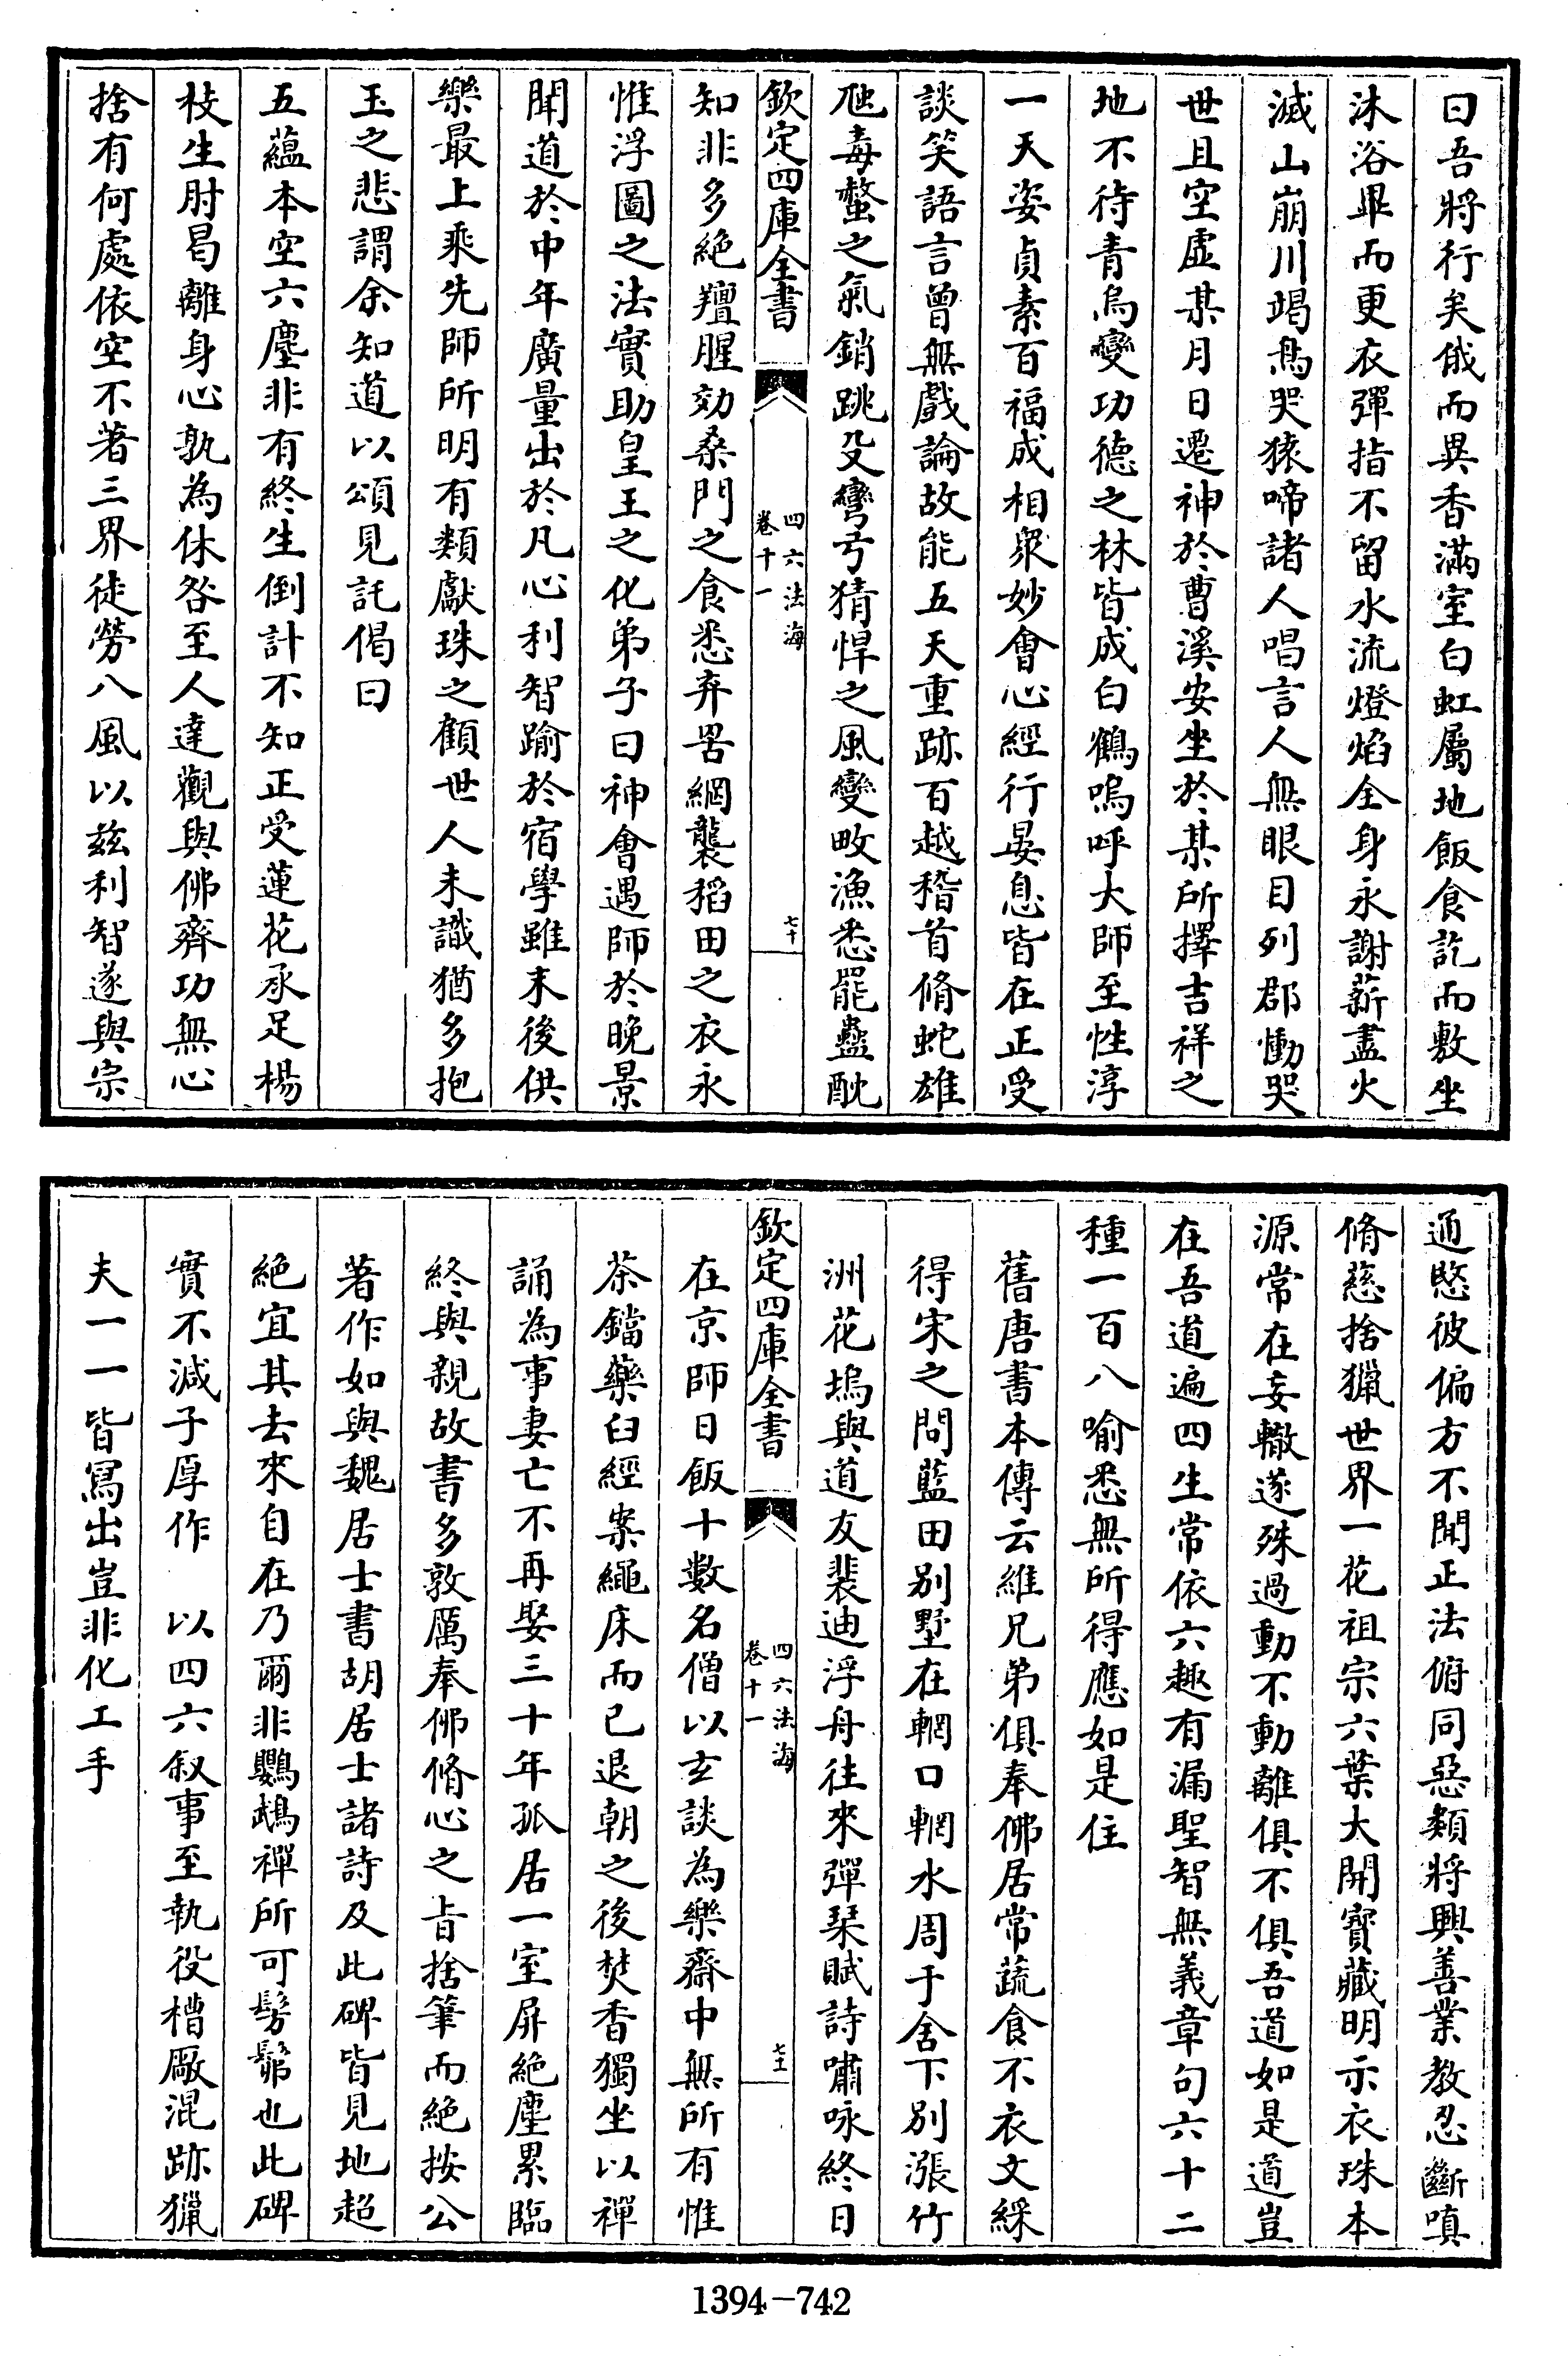 曰吾將行矣俄而異香滿室白虹屬地飯食訖而敷坐
沐浴畢而更衣彈指不留水流燈焰全身永謝薪盡火
滅山崩川竭鳥哭猿啼諸人唱言人無眼目列郡慟哭
世且空虛某月日遷神於曹溪安坐於某所擇吉祥之
地不待青烏變功德之林皆成白鶴嗚呼大師至性淳
一天姿貞素百福成相衆妙會心經行晏息皆在正受
談笑語言曾無戲論故能五天重跡百越稽首脩蛇雄
虺毒螫之氣銷跳殳彎弓猜悍之風變畋漁悉罷蠱酖
欽定四庫全書
四六法海
卷十一
七十
知非多絕羶腥効桑門之食悉弃罟網襲稻田之衣永
惟浮圖之法實助皇王之化弟子曰神會遇師於晚景
聞道於中年廣量出於凡心利智踰於宿學雖末後供
樂最上乘先師所明有類獻珠之顧世人未識猶多抱
玉之悲謂余知道以頌見託偈曰
五蘊本空六塵非有終生倒計不知正受蓮花承足楊
枝生肘曷離身心孰為休咎至人達觀與佛齊功無心
捨有何處依空不著三界徒勞八風以兹利智遂與宗
通愍彼偏方不聞正法俯同惡類將興善業教忍斷嗔
脩慈捨獵世界一花祖宗六葉大開寶藏明示衣珠本
源常在妄轍遂殊過動不動離俱不俱吾道如是道豈
在吾道遍四生常依六趣有漏聖智無義章句六十二
種一百八喻悉無所得應如是住
舊唐書本傳云維兄弟俱奉佛居常蔬食不衣文綵
得宋之問藍田別墅在輞口輞水周于舍下別漲竹
洲花塢與道友裴迪浮舟往來彈琹賦詩嘯咏終日
欽定四庫全書
四六法海
卷十一
七十一
在京師日飯十數名僧以玄談為樂齋中無所有惟
茶鐺藥臼經案繩床而已退朝之後焚香獨坐以禪
誦為事妻亡不再娶三十年孤居一室屏絕塵累臨
終與親故書多敦厲奉佛脩心之旨捨筆而絕按公
著作如與魏居士書胡居士諸詩及此碑皆見地超
絕宜其去來自在乃爾非鸚鵡禪所可髣髴也此碑
實不減子厚作　以四六叙事至執役槽廠混跡獵
夫一一皆寫出豈非化工手
1394-742